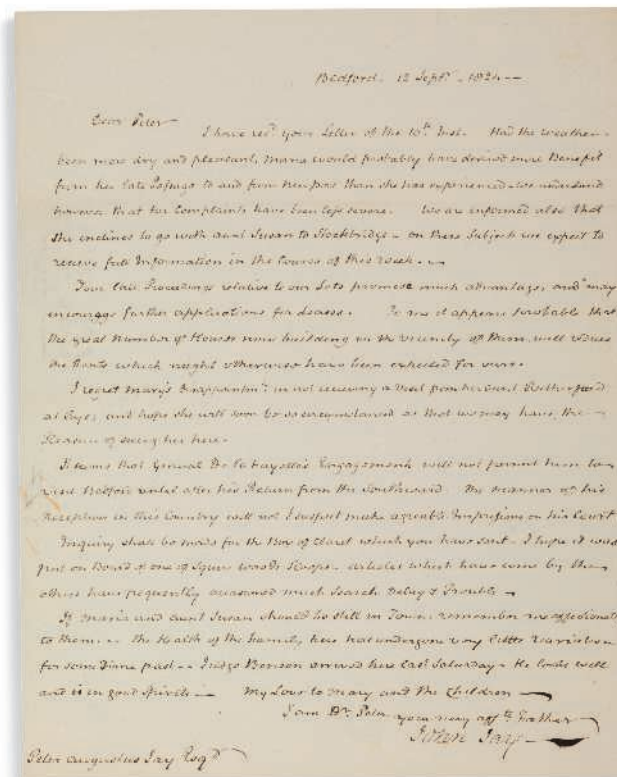 Bedford. 12 Septr. 1824 —
Dear Peter
I have recd. your Letter of the 10th. Inst. Had the weather
been more dry and pleasant, Maria would probably have derived more Benefit
from her late Passage to and from Newport than she has experienced - we understand
however that her Complaints have been less severe. We are informed also that
she inclines to go with aunt Susan to Stockbridge - on these Subjects we expect to
receive full Information in the Course of this week. —
Your late Procedures relative to our Lots promise much advantage, and may
encourage further applications for Leases. To me it appears probable that
the great number of Houses now building in the vicinity of them, will reduce
the Rents which might otherwise have been expected for ours.
I regret Mary's Disappointmt. in not receiving a Visit from her aunt Rutherfurd
at Rye; and hope she will soon be so circumstanced as that we may have the
Pleasure of seeing her here.
It seems that General De la Fayette's Engagements will not permit him to
visit Bedford until after his Return from the Southward. The manner of his
Reception in this Country will not I suspect make agreable Impressions on his Court
Inquiry shall be made for the Box of Claret which you have sent - I hope it was
put on Board of one of Squire wood's Sloops - articles which have come by the
others have frequently occasioned much Search Delay & Trouble —
If Maria and aunt Susan should be still in Town, remember me affectionately
to them. — The Health of the Family here has undergone very little variation
for some Time past - Judge Benson arrived here last Saturday - He looks well
and is in good Spirits — My Love to Mary and the Children —
I am Dr. Peter your very afft. Father
John Jay
Peter Augustus Jay Esqr.